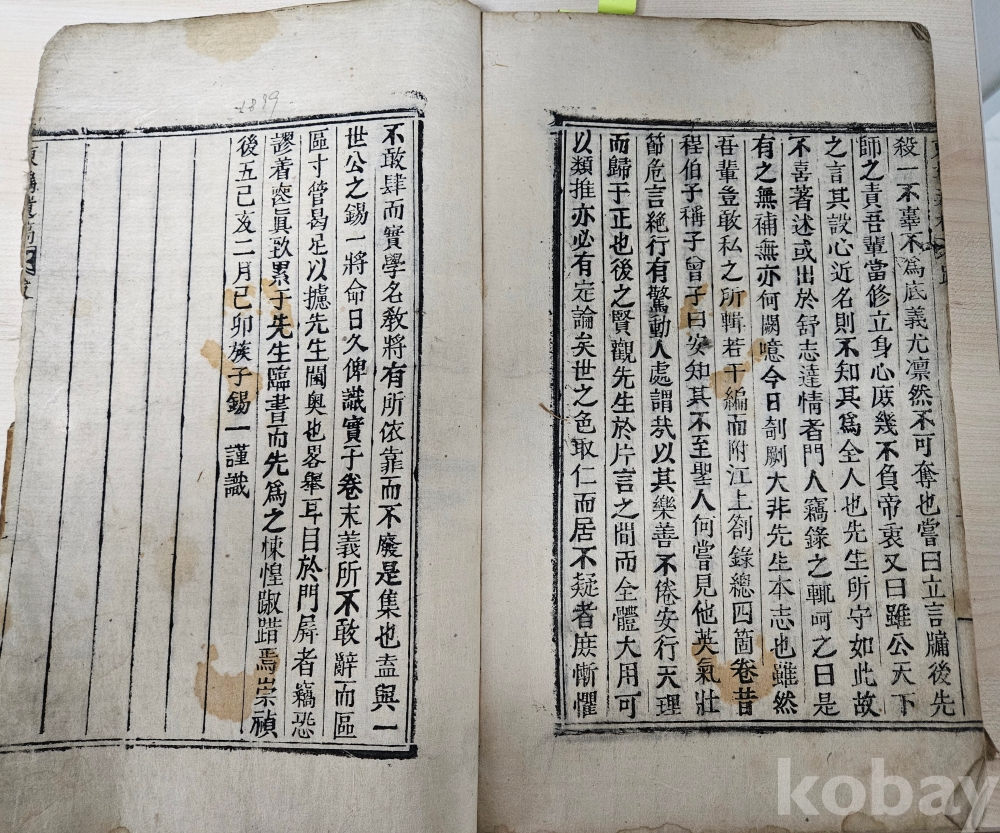 殺一不辜不爲底義尤凛然不可奪也嘗曰立言牖後先
師之責吾輩當修立身心庶幾不負帝衷又曰雖公天下
之言其設心近名則不知其爲全人也先生所守如此故
不喜著述或出於舒志達情者門人竊錄之輒呵之曰是
有之無補無亦何闕噫今日剞劂大非先生本志也雖然
吾輩豈敢私之所輯若干編而附江上劄錄總四箇卷昔
程伯子稱子曾子曰安知其不至聖人何嘗見他英氣壯
節危言絶行有驚動人處謂哉以其樂善不倦安行天理
而歸于正也後之賢觀先生於片言之間而全體大用可
以類推亦必有定論矣世之色取仁而居不疑者庶慚懼
不敢肆而實學名敎將有所依靠而不廢是集也盍與一
世公之錫一將命日久俾識實于卷末義所不敢辭而區
區寸管曷足以攄先生閫奧也畧舉耳目於門屛者竊恐
謬着爽眞致累于先生臨書而先爲之悚惶踧踖焉崇禎
後五己亥二月己卯族子錫一謹識
1889
kobay